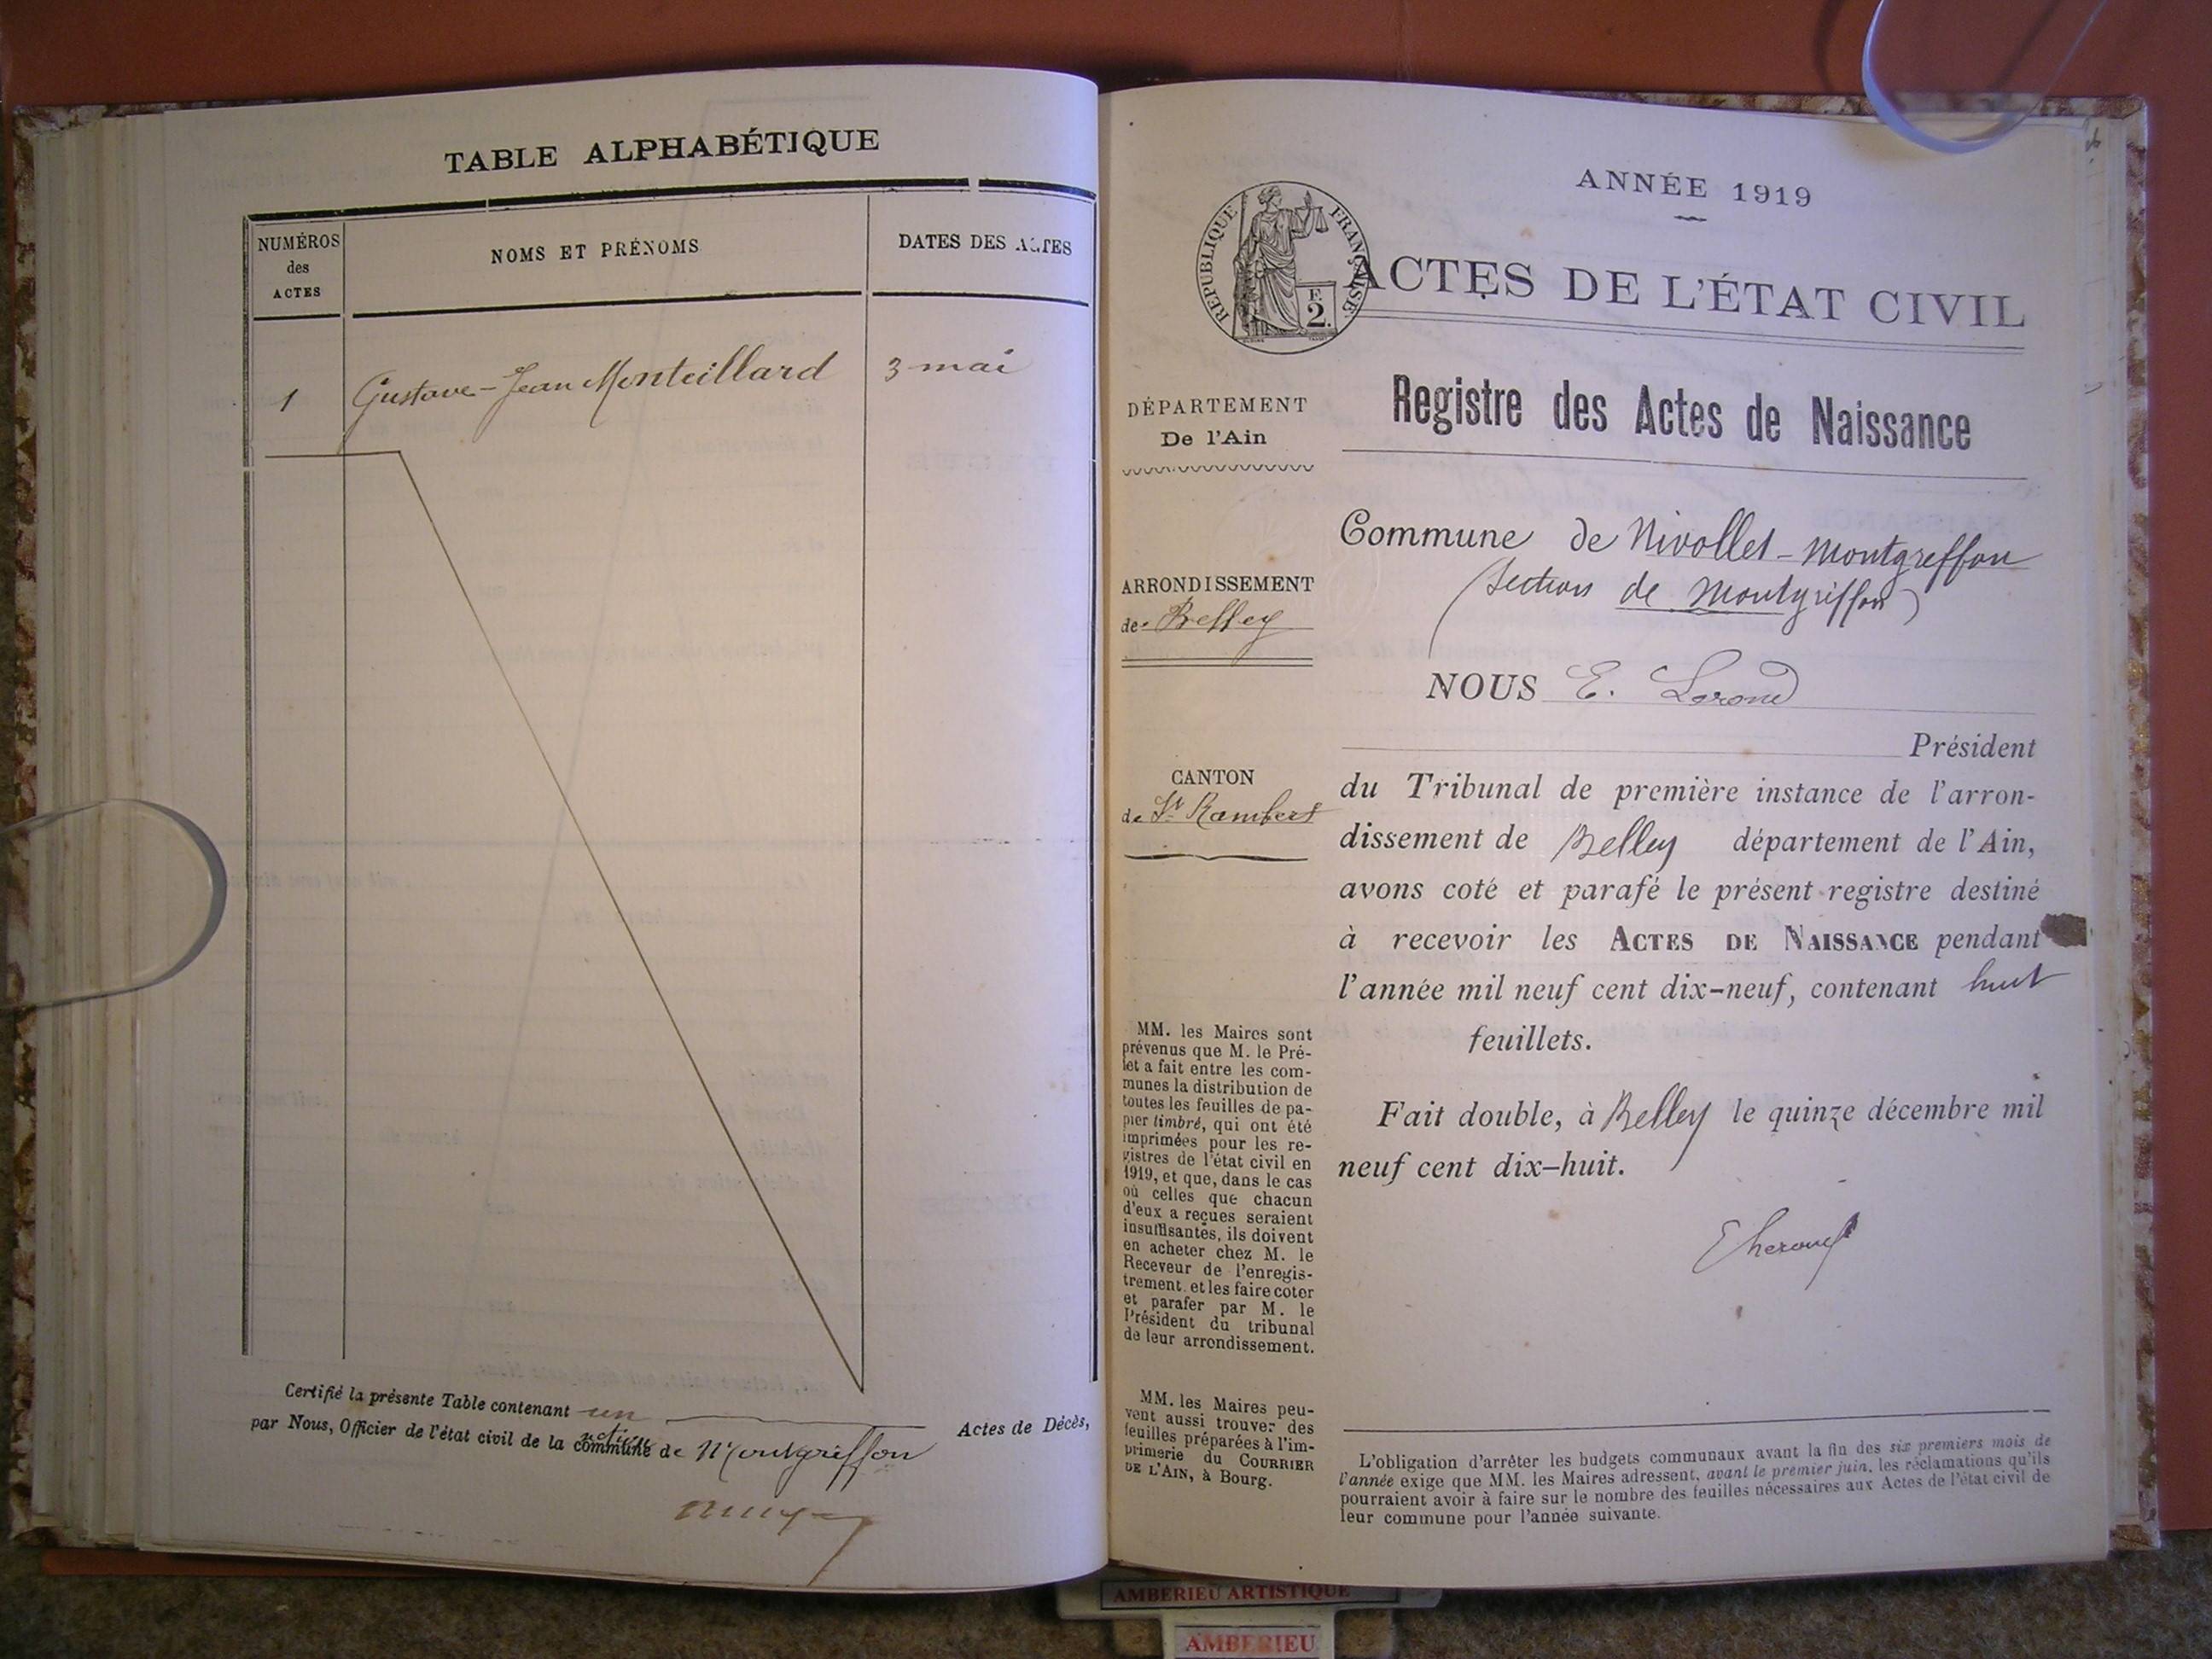 TABLE ALPHABÉTIQUE
NUMÉROS
des
ACTES
NOMS ET PRÉNOMS
DATES DES ACTES
1 Gustave-Jean Monteillard 3 mai
Certifié la présente Table contenant un Actes de Décès,
par Nous, Officier de l'état civil de la commune de Montgriffon
section
ANNÉE 1919
REPUBLIQUE FRANÇAISE
F.
2.
ACTES DE L'ÉTAT CIVIL
Registre des Actes de Naissance
DÉPARTEMENT
De l'Ain
ARRONDISSEMENT
de Belley
CANTON
de St Rambert
MM. les Maires sont
prévenus que M. le Pré-
fet a fait entre les com-
munes la distribution de
toutes les feuilles de pa-
pier timbré, qui ont été
imprimées pour les re-
gistres de l'état civil en
1919, et que, dans le cas
où celles que chacun
d'eux a reçues seraient
insuffisantes, ils doivent
en acheter chez M. le
Receveur de l'enregis-
trement et les faire coter
et parafer par M. le
Président du tribunal
de leur arrondissement.
MM. les Maires peu-
vent aussi trouver des
feuilles préparées à l'im-
primerie du COURRIER
DE L'AIN, à Bourg.
Commune de Nivollet-Montgreffon
(Section de Montgriffon)
NOUS E.
Président
du Tribunal de première instance de l'arron-
dissement de Belley département de l'Ain,
avons coté et parafé le présent registre destiné
à recevoir les ACTES DE NAISSANCE pendant
l'année mil neuf cent dix-neuf, contenant huit
feuillets.
Fait double, à Belley le quinze décembre mil
neuf cent dix-huit.
L'obligation d'arrêter les budgets communaux avant la fin des six premiers mois de
l'année exige que MM. les Maires adressent, avant le premier juin, les réclamations qu'ils
pourraient avoir à faire sur le nombre des feuilles nécessaires aux Actes de l'état civil de
leur commune pour l'année suivante.
AMBERIEU ARTISTIQUE
AMBERIEU